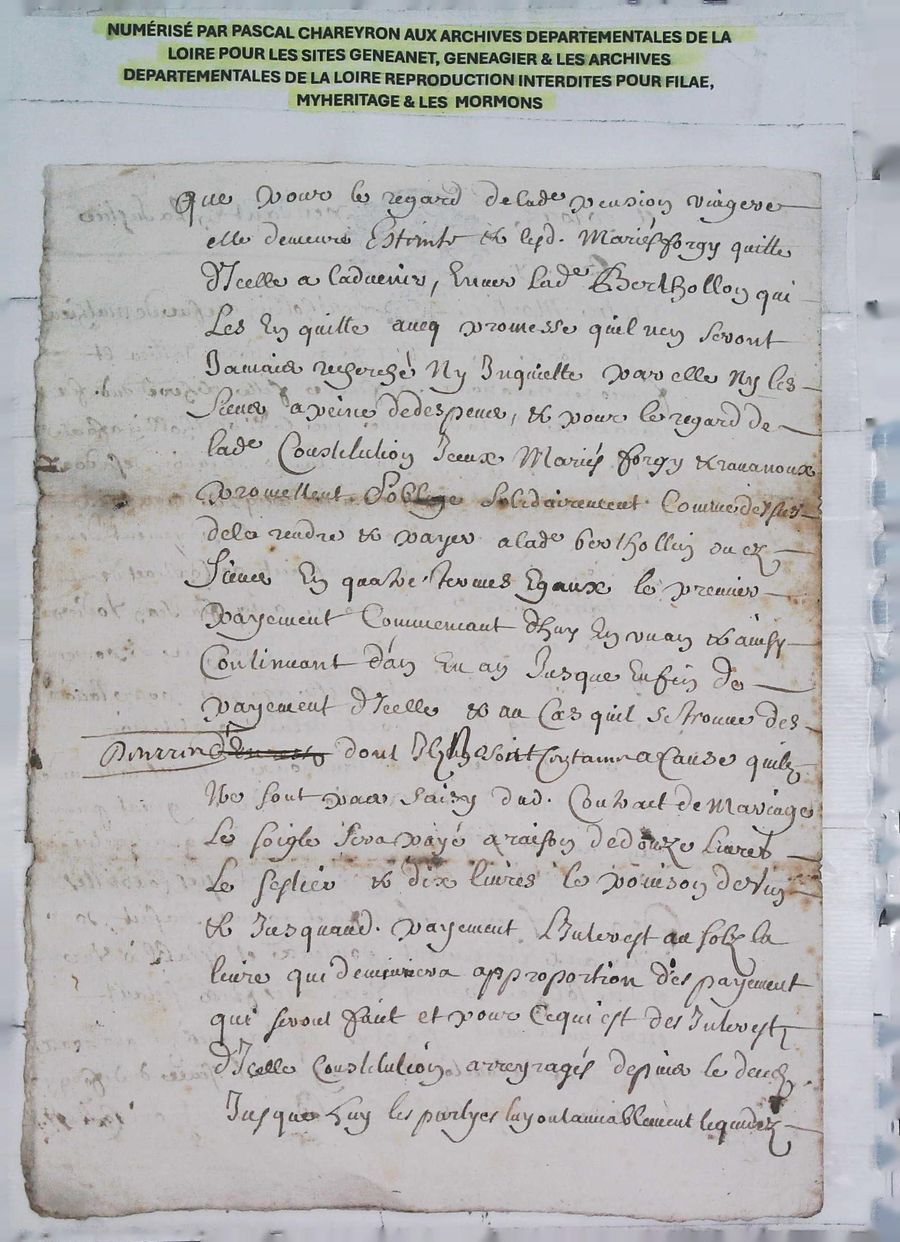 NUMÉRISÉ PAR PASCAL CHAREYRON AUX ARCHIVES DEPARTEMENTALES DE LA
LOIRE POUR LES SITES GENEANET, GENEAGIER & LES ARCHIVES
DEPARTEMENTALES DE LA LOIRE REPRODUCTION INTERDITES POUR FILAE,
MYHERITAGE & LES MORMONS
Que pour le regard de lade pension viagere
elle demeure Esteinte & lesd. Mariés forgy quitte
d'Icelle a ladvenir, Envers lade Berthollon qui
Les En quitte avecq promesse quil nen seront
Jamais recherché Ny Inquiette par elle Ny les
Siens a peine de despens, & pour le regard de
lade Constitution Iceux Mariés forgy &
promettent solidairement Comme dessus
de la rendre & payer a lade berthollin ou ez
Siens En quatre termes Egaux le premier
payement Commencant d'huy En un an & ainsy
Continuant d'an En an Jusque Enfin de
payement d'Icelle & au Cas quil se trouve des
dont soit Certaine a Cause quilz
Ne sont pas saisy dud. Contrat de Mariage
Le soigle sera payé a raison de douze Livres
Le sestier & dix livres le poinson de vin
& Jusquaud. payement L'Interest au solz la
livre qui deminuera approportion des payement
qui seront faiit et pour Cequi est des Interestz
d'Icelle Constitution arreyragés depuis le
Jusque huy les partyes